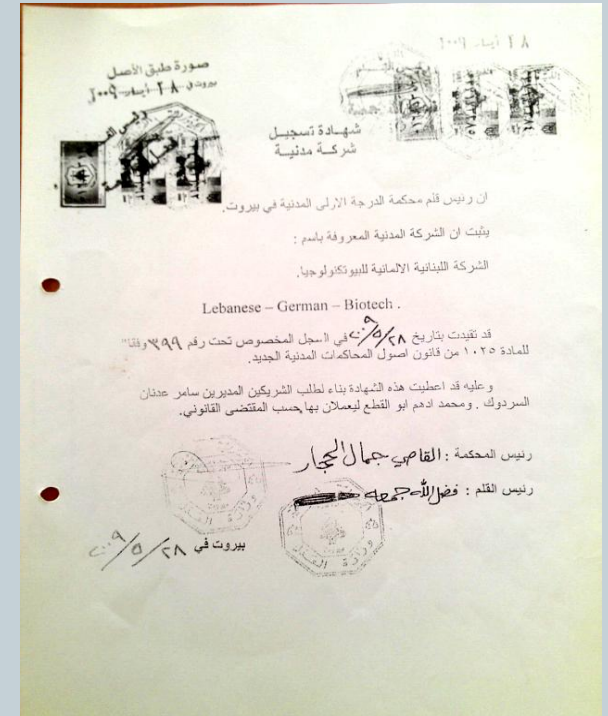 ٢٨ أيار ٢٠٠٩
صورة طبق الأصل
بيروت في ٢٨ أيار ٢٠٠٩
شهادة تسجيل
شركة مدنية
ان رئيس قلم محكمة الدرجة الاولى المدنية في بيروت.
يثبت ان الشركة المدنية المعروفة باسم :
الشركة اللبنانية الالمانية للبيوتكنولوجيا.
Lebanese – German – Biotech .
قد تقيدت بتاريخ ٢٨/٥/٢٠٠٩ في السجل المخصوص تحت رقم ٣٩٩ وفقا"
للمادة ١٠٢٥ من قانون اصول المحاكمات المدنية الجديد.
وعليه قد اعطيت هذه الشهادة بناء لطلب الشريكين المديرين سامر عدنان
السردوك . ومحمد ادهم ابو القطع ليعملان بها حسب المقتضى القانوني.
رئيس المحكمة : القاضي جمال الحجار
رئيس القلم : فضل الله جمعه
وزارة العدل
وزارة العدل
بيروت في ٢٨/٥/٢٠٠٩